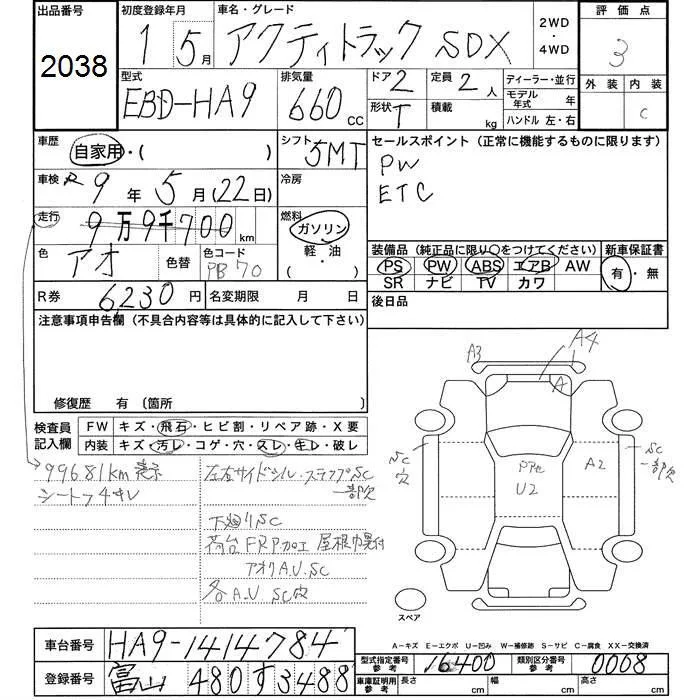 出品番号
2038
初度登録年月
1 5月
車名・グレード
アクティトラック SDX
2WD
・
4WD
評価点
3
型式
EBD-HA9
排気量
660 CC
ドア
2
定員
2人
形状
T
積載
kg
ディーラー・並行
モデル年式 年
ハンドル 左・右
外装 内装
C
車歴
自家用・( )
シフト
5MT
セールスポイント(正常に機能するものに限ります)
PW
ETC
車検 R 9年 5月(22日)
冷房
走行 9万9千700km
燃料
ガソリン
軽・油
( ・ )
色
アオ
色替
色コード
PB70
装備品(純正品に限り○をつけてください)
PS PW ABS エアB AW
SR ナビ TV カワ
新車保証書
有・無
R券 6230円
名変期限 月 日
後日品
注意事項申告欄(不具合内容等は具体的に記入して下さい)
修復歴 有 〔箇所 〕
検査員記入欄
FW キズ・飛石・ヒビ割・リペア跡・X要
内装 キズ・汚レ・コゲ・穴・スレ・キレ・破レ
99681km 表示
シートフチキレ
左右サイドシル・ステップSC
一部欠
下廻りSC
荷台FRP加工 屋根巾
アオリA.U.SC
各A.U SC穴
A3
A4
A
SC
穴
A2
U2
SC
一部欠
スペア
A－キズ E－エクボ U－凹み W－補修跡 S－サビ C－腐食 XX－交換済
車台番号 HA9-1414784
登録番号 富山 480 す 3488
型式指定番号 参考 16400
類別区分番号 参考 0008
車庫証明用 参考
長さ cm
幅 cm
高さ cm